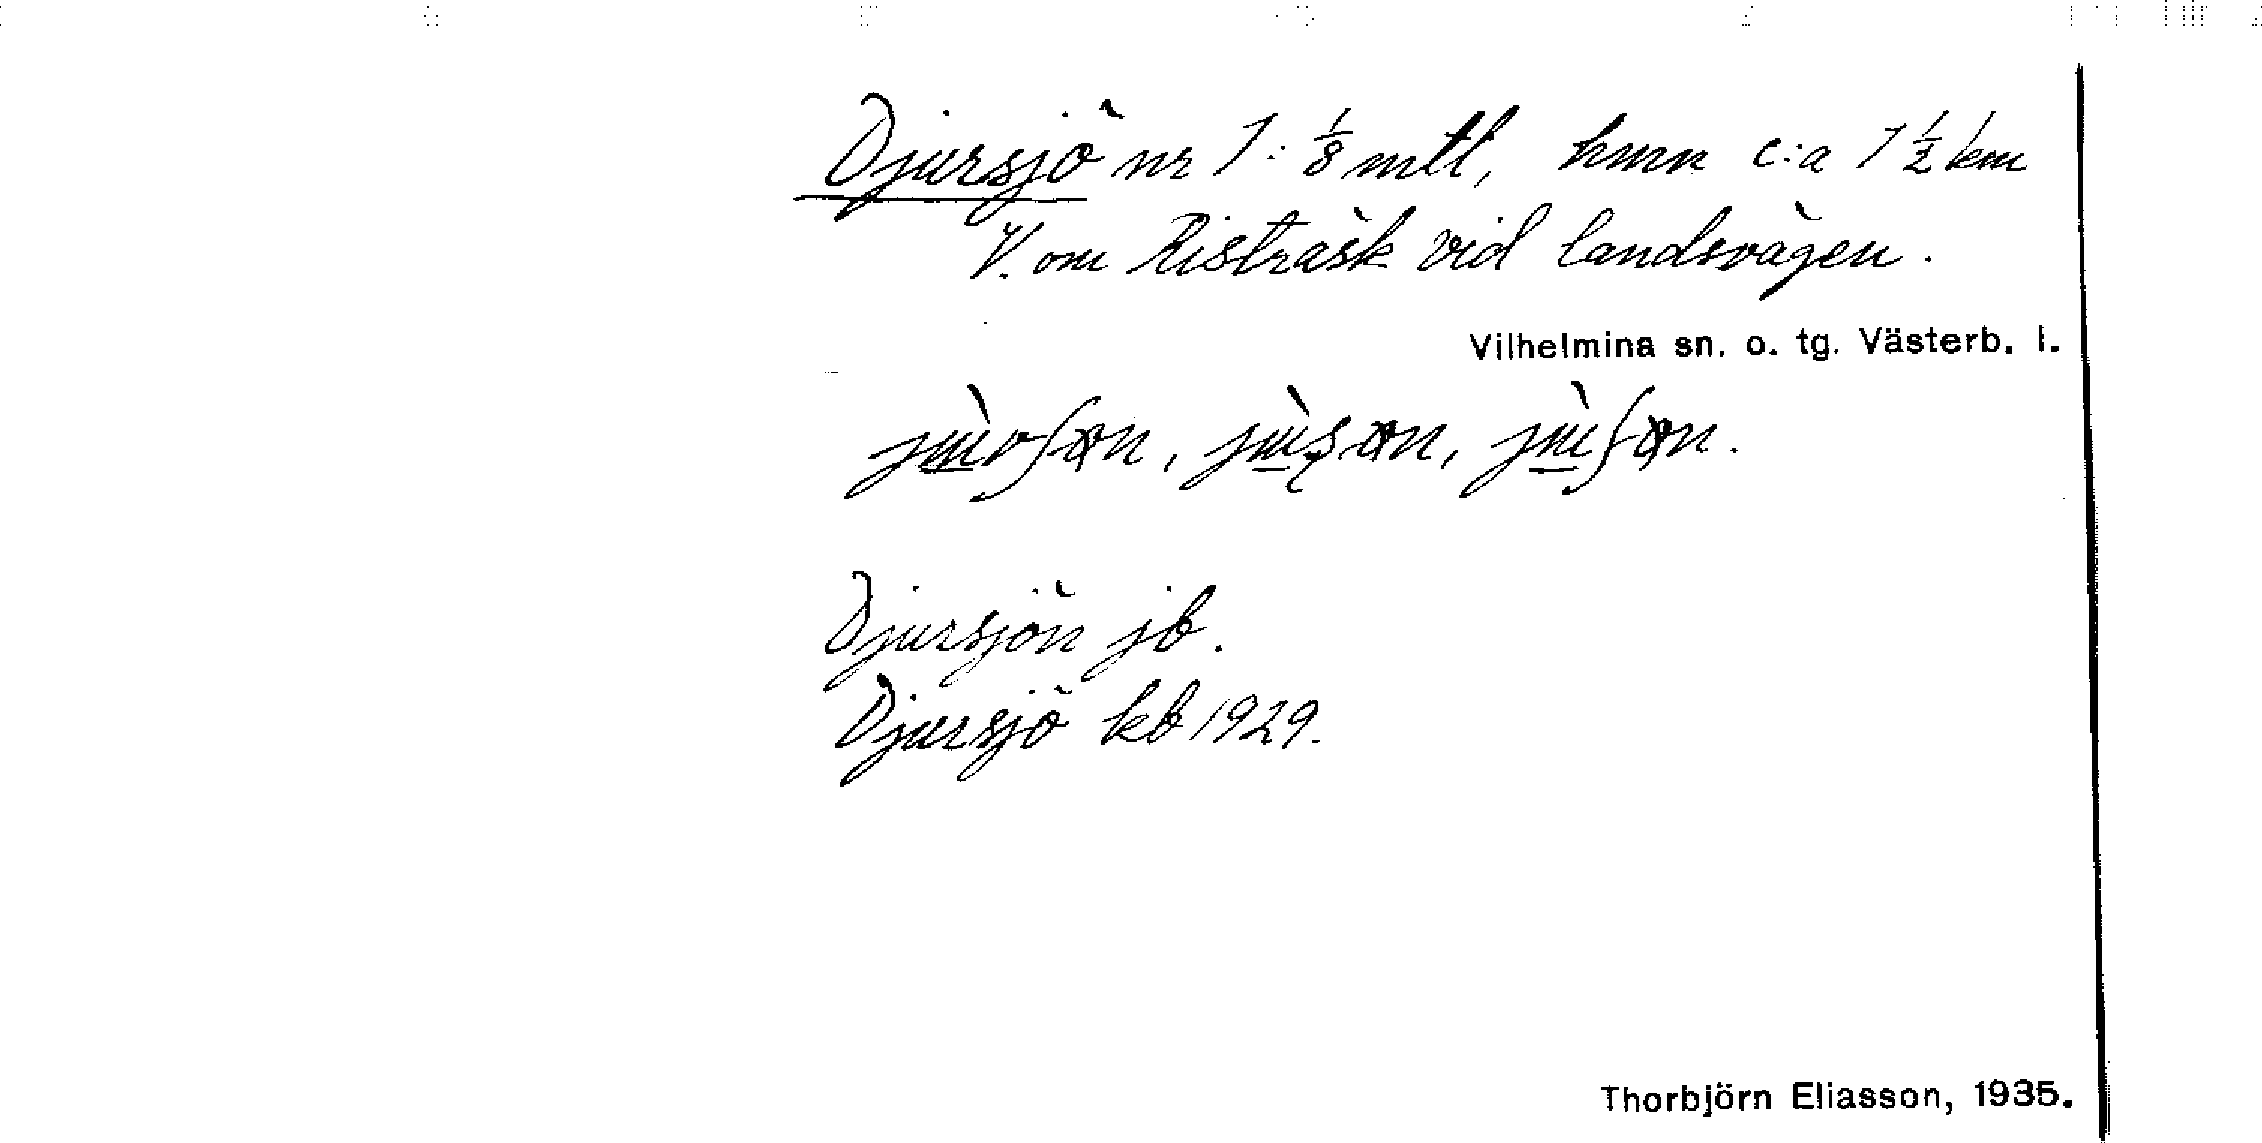 Djursjö nr 1: 1/8 mtl, hmn c:a 1 1/2 km
V. om Risträsk vid landsvägen.
Vilhelmina sn. o. tg. Västerb. l.
Djursjön jb.
Djursjö kb 1929.
Thorbjörn Eliasson, 1935.